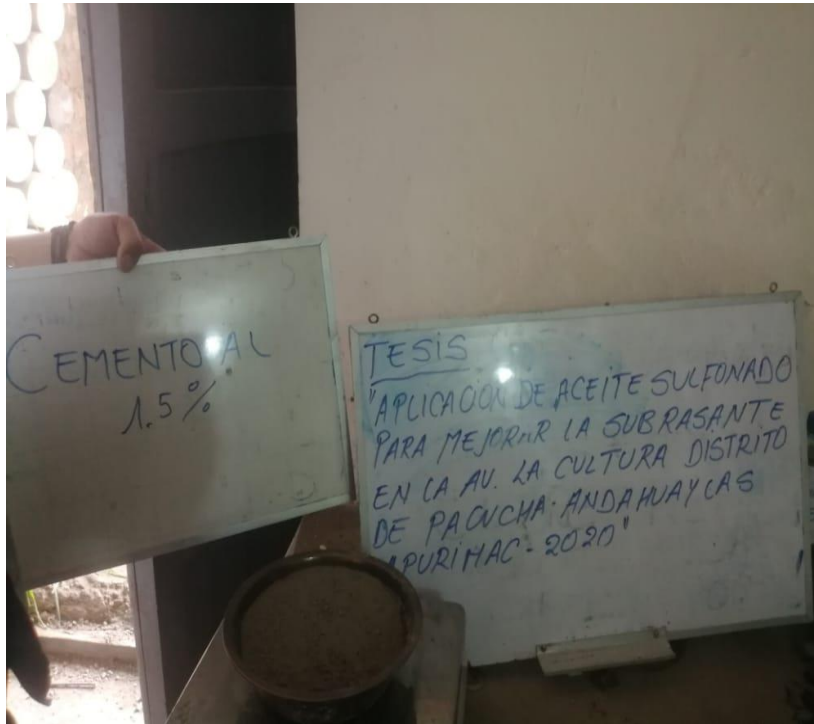 CEMENTO AL
1.5%
TESIS
"APLICACION DE ACEITE SULFONADO
PARA MEJORAR LA SUBRASANTE
EN LA AV. LA CULTURA DISTRITO
DE PACUCHA-ANDAHUAYLAS
APURIMAC-2020"